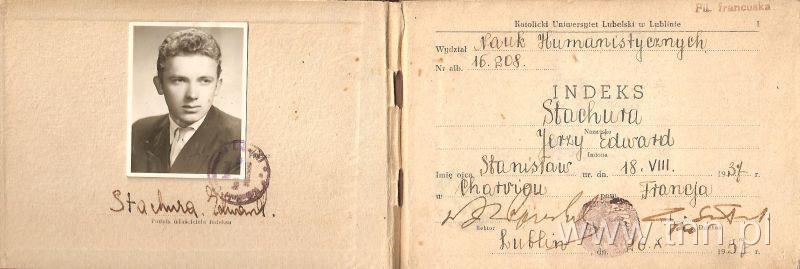 Stachura Edward.
Podpis właściciela indeksu
Fil. francuska
Katolicki Uniwersytet Lubelski w Lublinie 1
Wydział Nauk Humanistycznych
Nr alb. 16.208.
INDEKS
Stachura
Nazwisko
Jerzy Edward
Imiona
Imię ojca Stanisław ur. dn. 18. VIII. 1937 r.
w Charvigu pow. Francja
Rektor Dziekan
Lublin, dn. X 1957 r.
www.tnn.pl